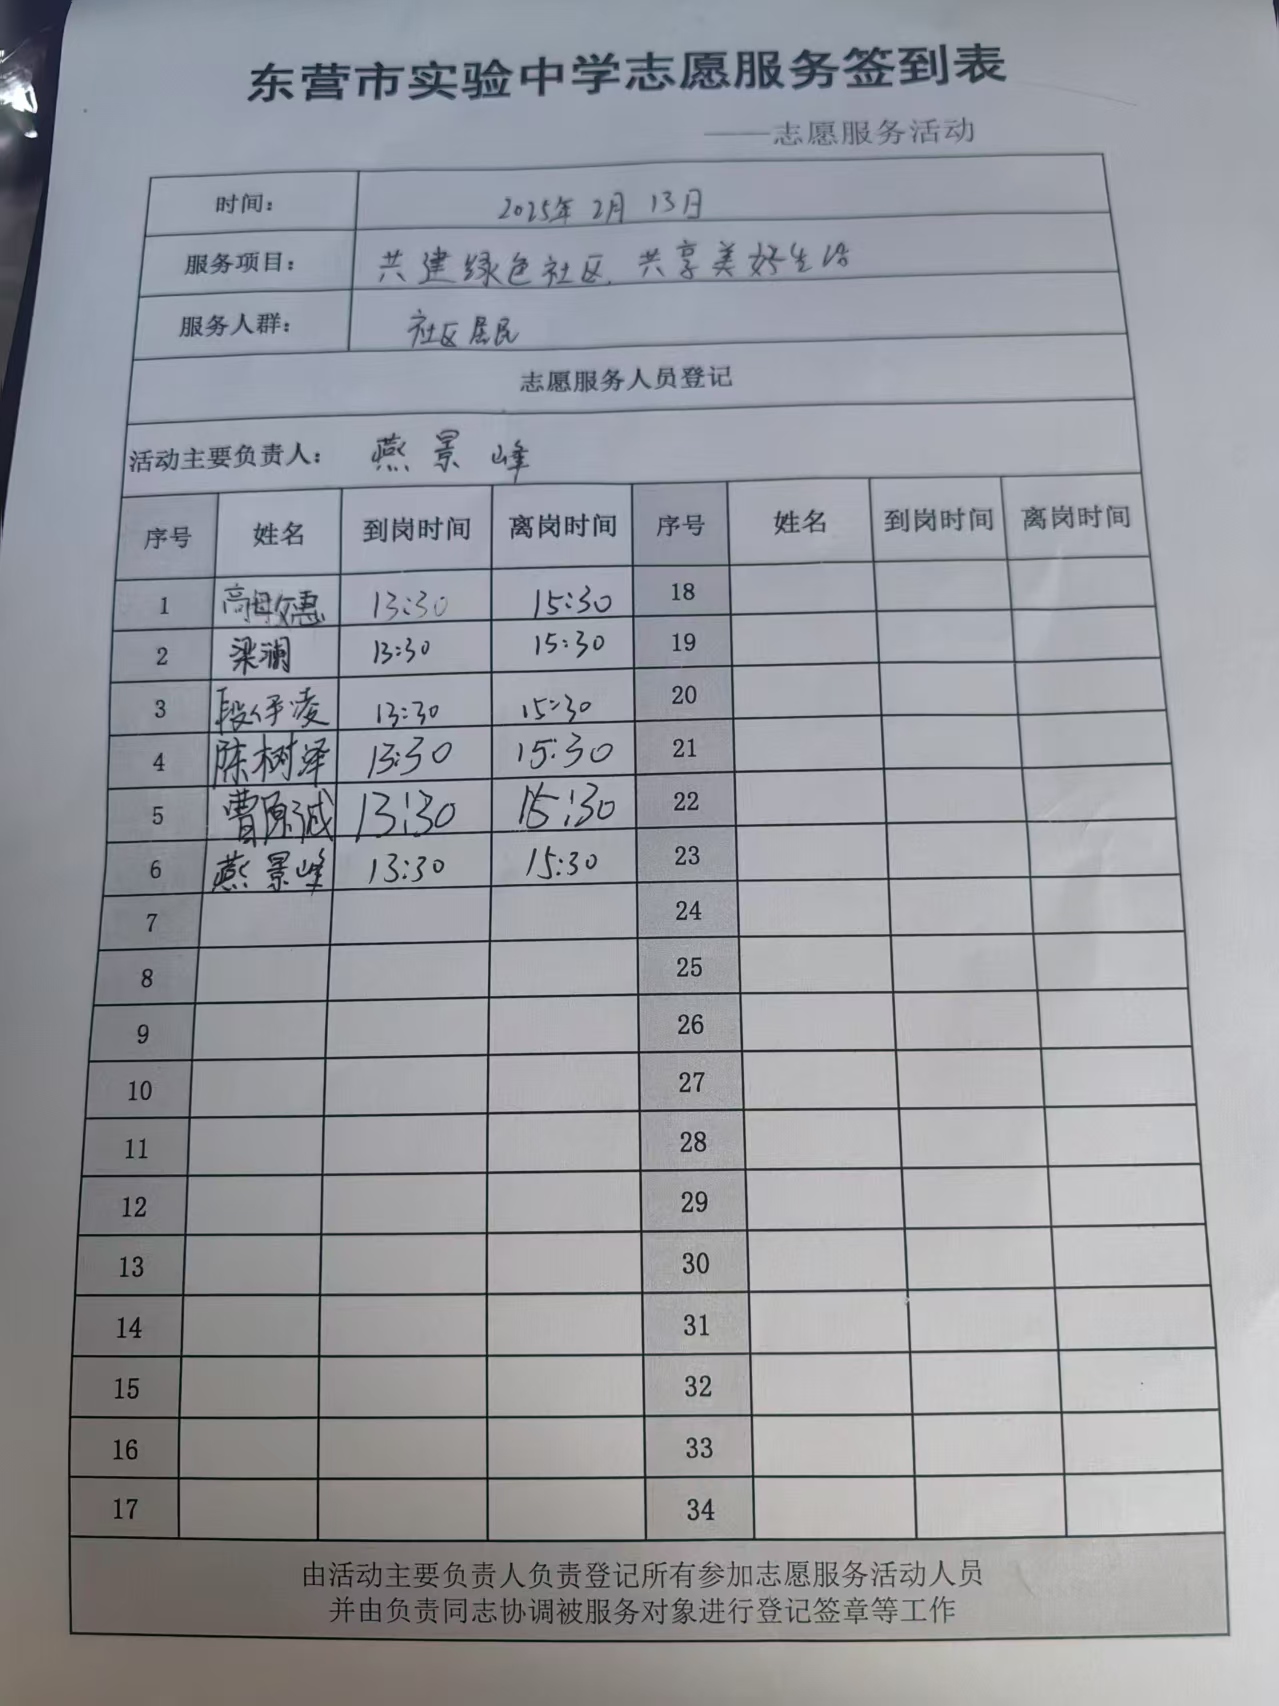 东营市实验中学志愿服务签到表
——志愿服务活动
时间： 2025年2月13日
服务项目： 共建绿色社区，共享美好生活
服务人群： 社区居民
志愿服务人员登记
活动主要负责人： 燕景峰
序号 姓名 到岗时间 离岗时间 序号 姓名 到岗时间 离岗时间
1 13:30 15:30 18
2 梁澜 13:30 15:30 19
3 段伊凌 13:30 15:30 20
4 陈树泽 13:30 15:30 21
5 曹原诚 13:30 15:30 22
6 燕景峰 13:30 15:30 23
7 24
8 25
9 26
10 27
11 28
12 29
13 30
14 31
15 32
16 33
17 34
由活动主要负责人负责登记所有参加志愿服务活动人员
并由负责同志协调被服务对象进行登记签章等工作